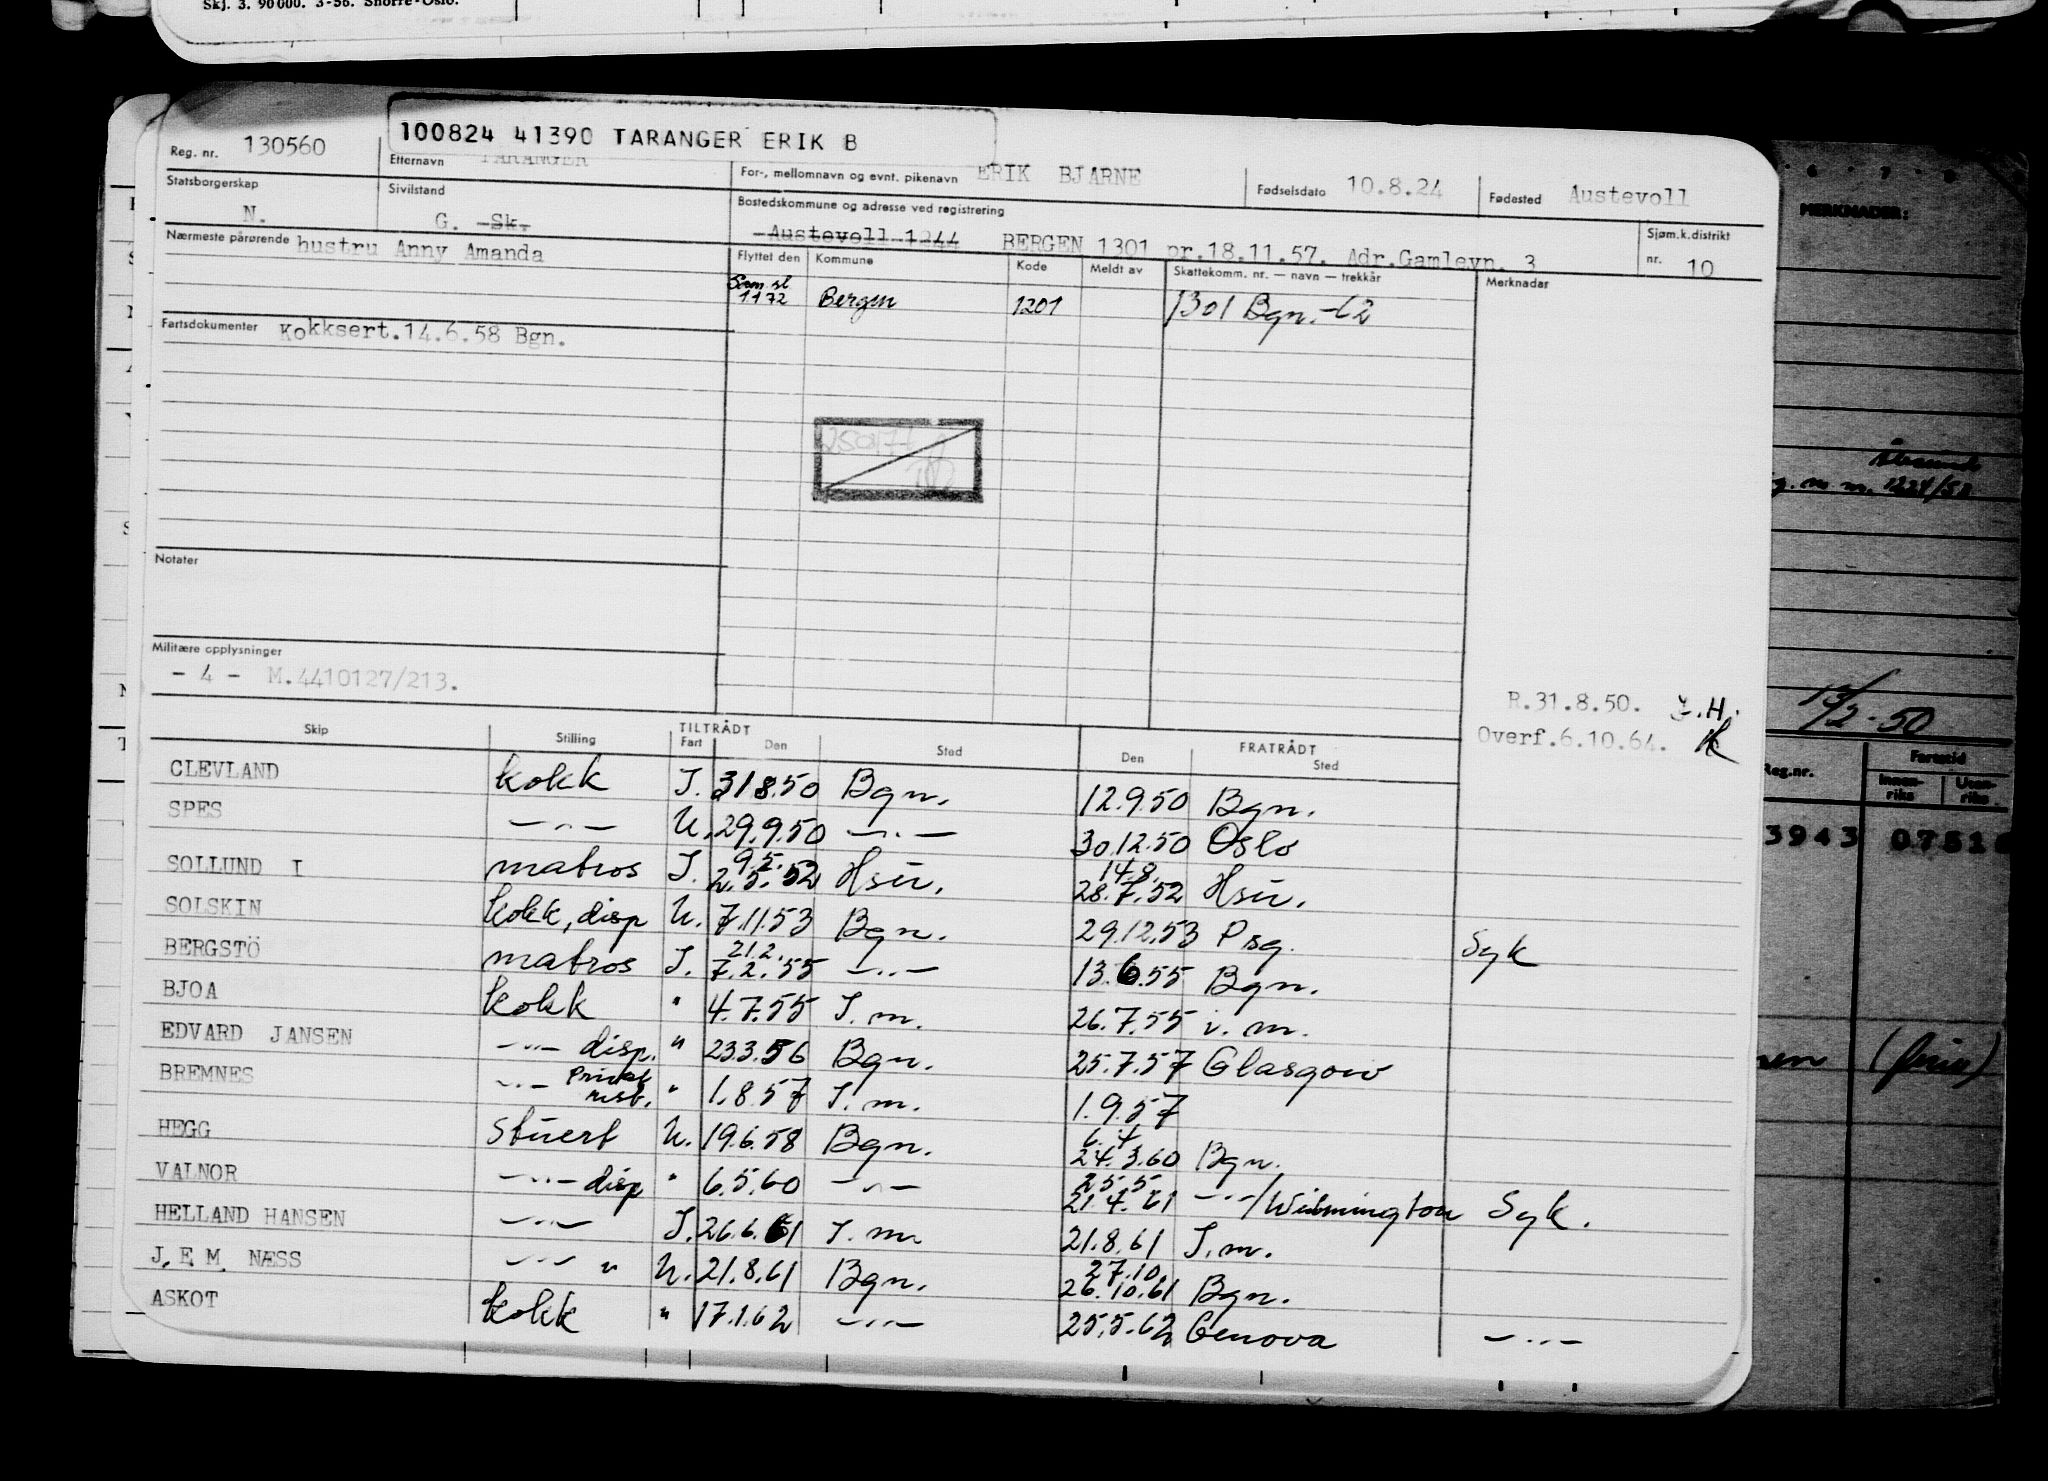 Skj. 3. 90000. 3-56. Snorre-Oslo.
100824 41390 TARANGER ERIK B
Reg. nr. 130560 Etternavn TARANGER For-, mellomnavn og evnt. pikenavn ERIK BJARNE Fødselsdato 10.8.24 Fødested Austevoll
Statsborgerskap N. Sivilstand G. Sk. Bostedskommune og adresse ved registrering
Austevoll 1244 BERGEN 1301 pr.18.11.57. Adr.Gamlevn. 3 Sjøm.k.distrikt nr. 10
Nærmeste pårørende hustru Anny Amanda
Flyttet den Kommune Kode Meldt av Skattekomm. nr. — navn — trekkår Merknadar
1172 Bergen 1201 1301 Bgn.-62
Fartsdokumenter Kokksert.14.6.58 Bgn.
Notater
Militære opplysninger
- 4 - M.4410127/213.
R.31.8.50. J.H.
Overf.6.10.64.
Skip Stilling TILTRÅDT Fart Den Sted FRATRÅDT Den Sted
CLEVLAND kokk I. 31.8.50 Bgn. 12.9.50 Bgn.
SPES —"— U. 29.9.50 —"— 30.12.50 Oslo
9.5. 14.8.
SOLLUND I matros I. 2.5.52 Hsu. 28.7.52 Hsu.
SOLSKIN kokk, disp U. 7.11.53 Bgn. 29.12.53 Psg. Syk
21.2.
BERGSTÖ matros I. 7.2.55 —"— 13.6.55 Bgn.
BJOA kokk " 4.7.55 I.m. 26.7.55 i.m.
EDVARD JANSEN —"— disp. " 23.3.56 Bgn. 25.7.57 Glasgow
BREMNES —"— " 1.8.57 I.m. 1.9.57
6.4
HEGG stuert U. 19.6.58 Bgn. 24.3.60 Bgn.
25.5
VALNOR —"— disp " 6.5.60 —"— 21.4.61 —"—/Wilmington Syk.
HELLAND HANSEN —"— I. 26.6.61 I.m. 21.8.61 I.m.
27.10.
J. E M. NÆSS —"— " U. 21.8.61 Bgn. 26.10.61 Bgn.
ASKOT kokk " 17.1.62 —"— 25.5.62 Genova —"—
6 - 7 - 8
MERKNADER:
Reg.nr. Fartstid
Innenriks Utenriks
3943